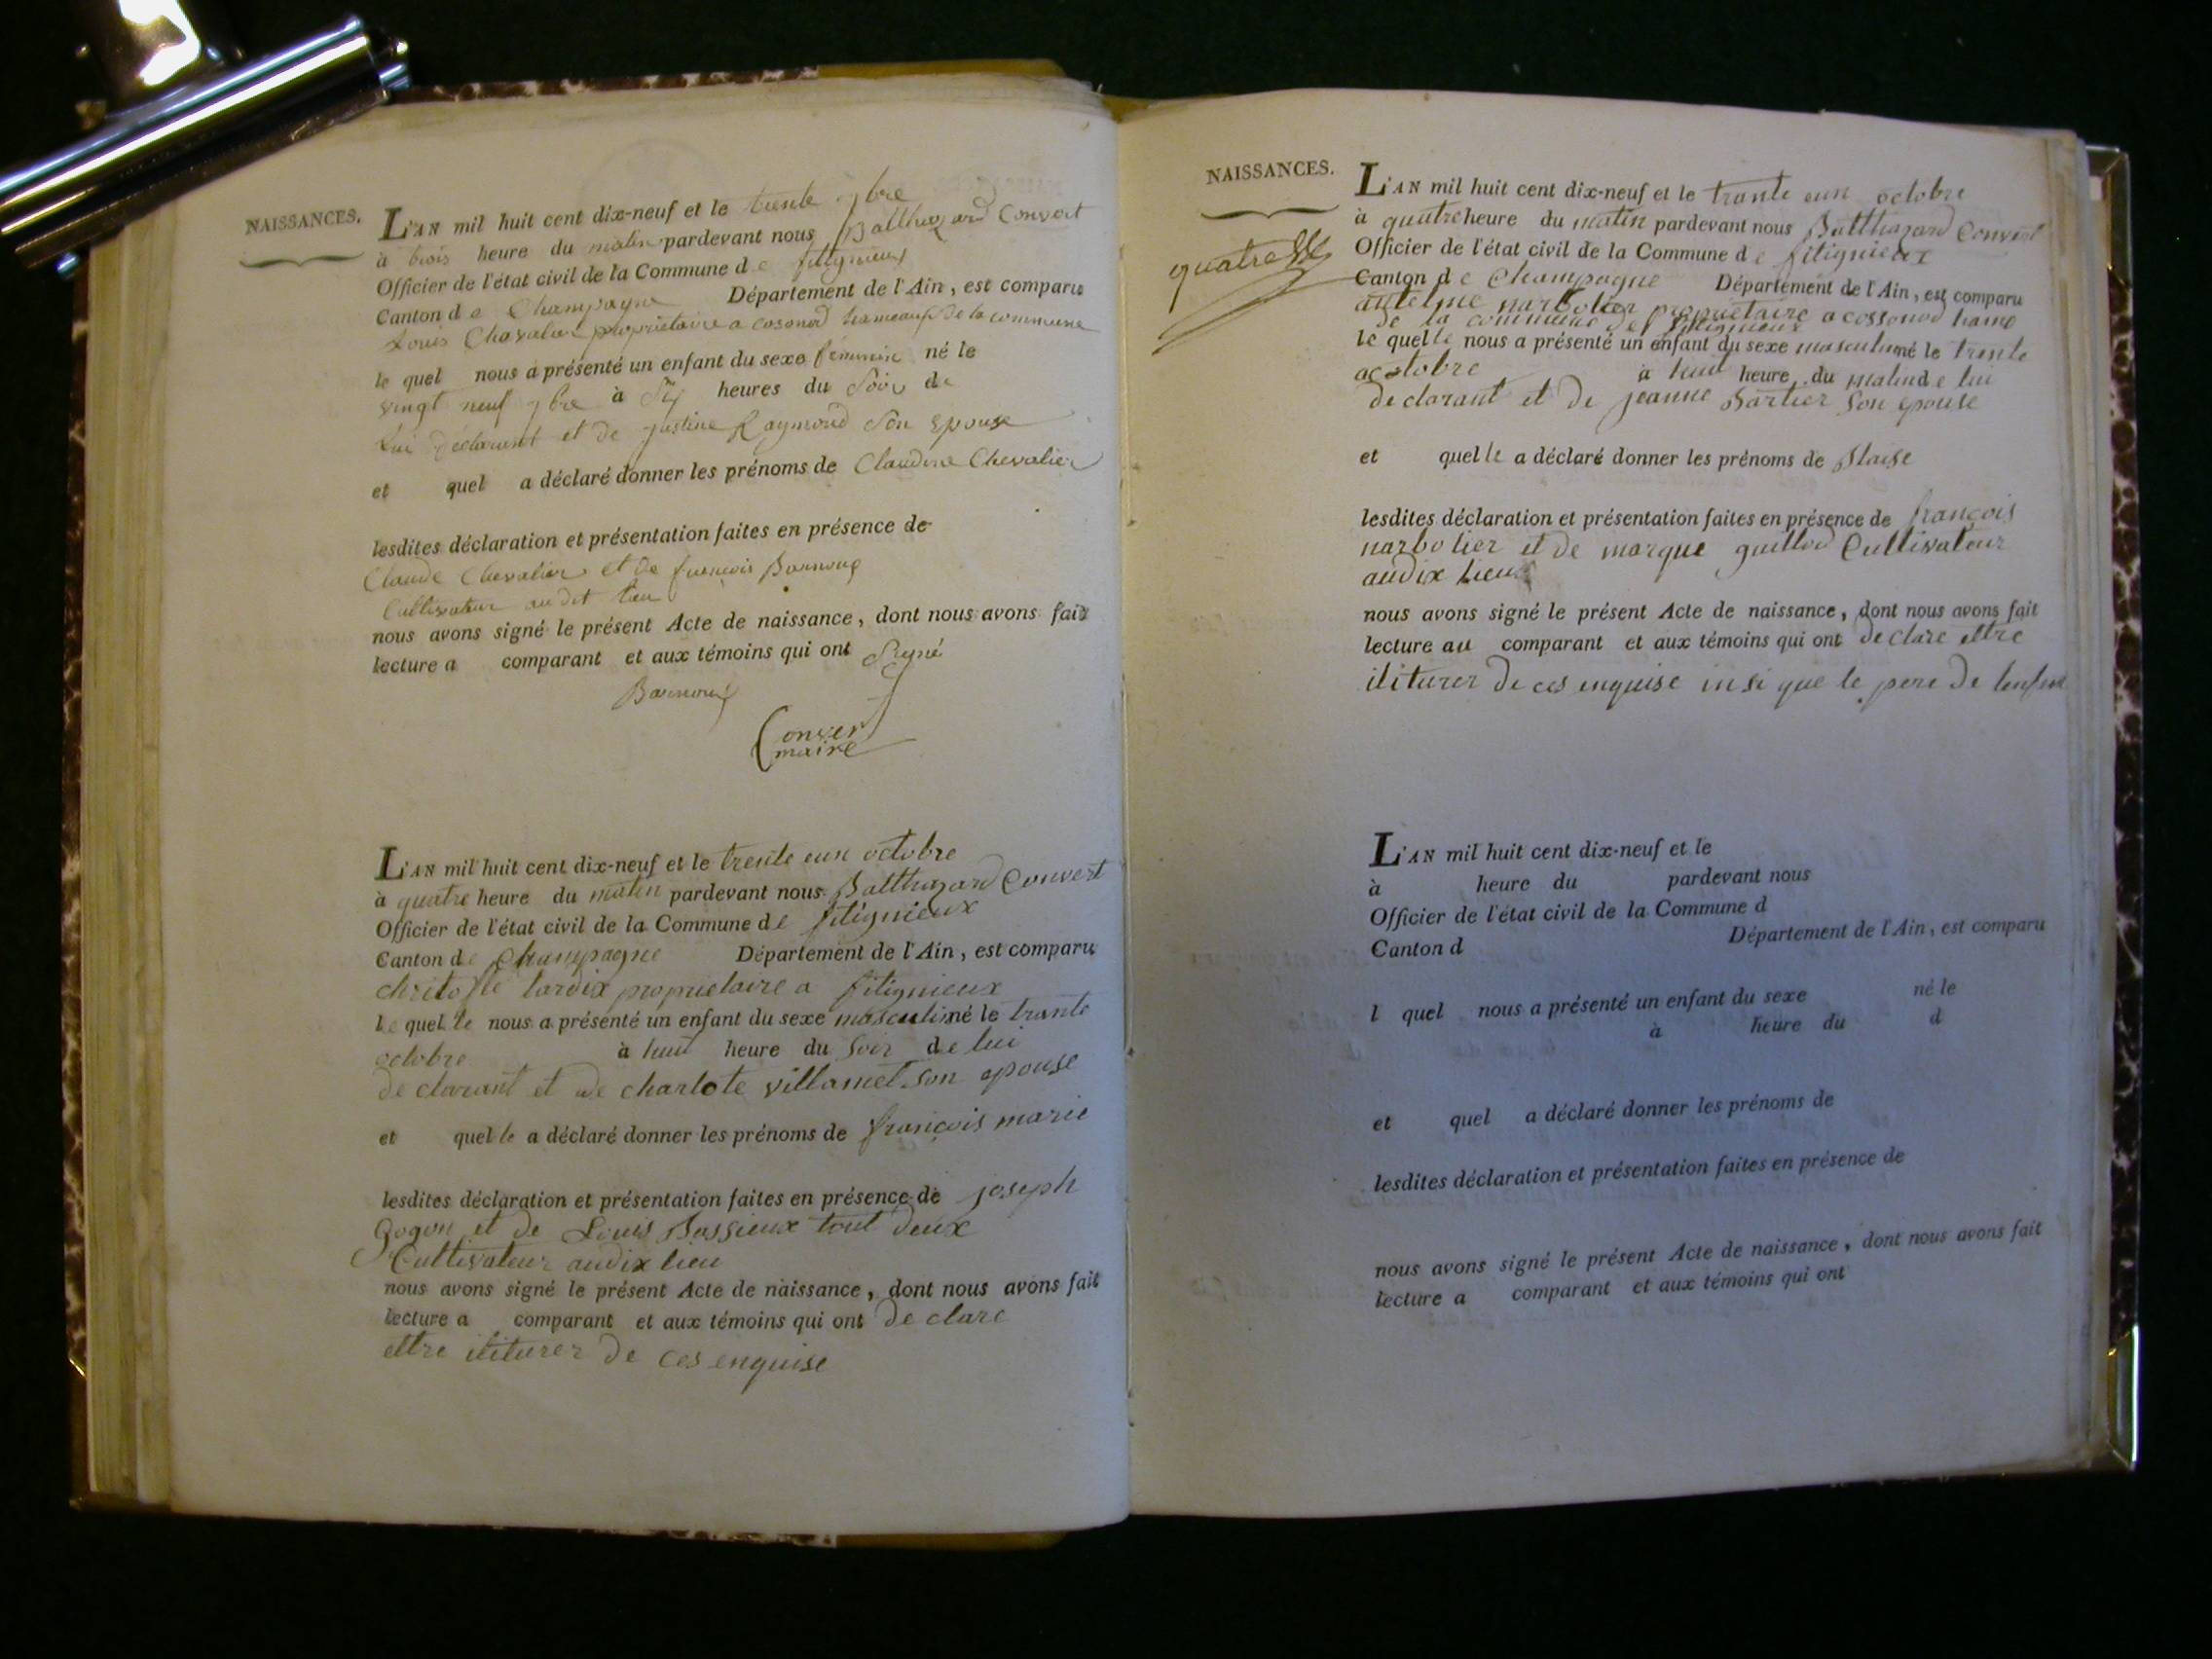 NAISSANCES.
L'AN mil huit cent dix-neuf et le trente 9bre
à trois heure du matin pardevant nous Balthazard Convert
Officier de l'état civil de la Commune de fitignieux
Canton de Champagne Département de l'Ain, est comparu
Louis Chevalier propriétaire a cosonod hameaux de la commune
le quel nous a présenté un enfant du sexe féminin né le
vingt neuf 9bre à heures du Soir de
Lui déclarant et de justine Raymond Son Epouse
et quel a déclaré donner les prénoms de Claudine Chevalier
lesdites déclaration et présentation faites en présence de
Claude Chevalier et de françois
Cultivateur au dit lieu
nous avons signé le présent Acte de naissance, dont nous avons fait
lecture a comparant et aux témoins qui ont Signé
Conver
maire
L'AN mil huit cent dix-neuf et le trente eun octobre
à quatre heure du matin pardevant nous Balthazard Convert
Officier de l'état civil de la Commune de fitignieux
Canton de Champagne Département de l'Ain, est comparu
tardix proprietaire a fitignieux
le quel le nous a présenté un enfant du sexe masculin né le trante
octobre à huit heure du Soir de lui
de clarant et de charlote villamet son epouse
et quel le a déclaré donner les prénoms de françois marie
lesdites déclaration et présentation faites en présence de joseph
gogon et de Louis Bassieux tout deux
Cultivateur audix lieu
nous avons signé le présent Acte de naissance, dont nous avons fait
lecture a comparant et aux témoins qui ont de clare
ettre iliturer de ces enquise
NAISSANCES.
quatre
L'AN mil huit cent dix-neuf et le trante eun octobre
à quatre heure du matin pardevant nous Balthazard Convert
Officier de l'état civil de la Commune de fitignieux
Canton de Champagne Département de l'Ain, est comparu
antelme narbolier propriétaire a cossonod hamo
de la commune de fitignieux
le quel le nous a présenté un enfant du sexe masculin né le trente
octobre à huit heure du matin de lui
declarant et de jeanne Bartier son epouse
et quel le a déclaré donner les prénoms de Blaise
lesdites déclaration et présentation faites en présence de françois
narbolier et de marque guillod Cultivateur
audix lieu
nous avons signé le présent Acte de naissance, dont nous avons fait
lecture au comparant et aux témoins qui ont de clare ettre
iliturer de ces enquise insi que le pere de lenfent
L'AN mil huit cent dix-neuf et le
à heure du pardevant nous
Officier de l'état civil de la Commune d
Canton d Département de l'Ain, est comparu
l quel nous a présenté un enfant du sexe né le
à heure du d
et quel a déclaré donner les prénoms de
lesdites déclaration et présentation faites en présence de
nous avons signé le présent Acte de naissance, dont nous avons fait
lecture a comparant et aux témoins qui ont